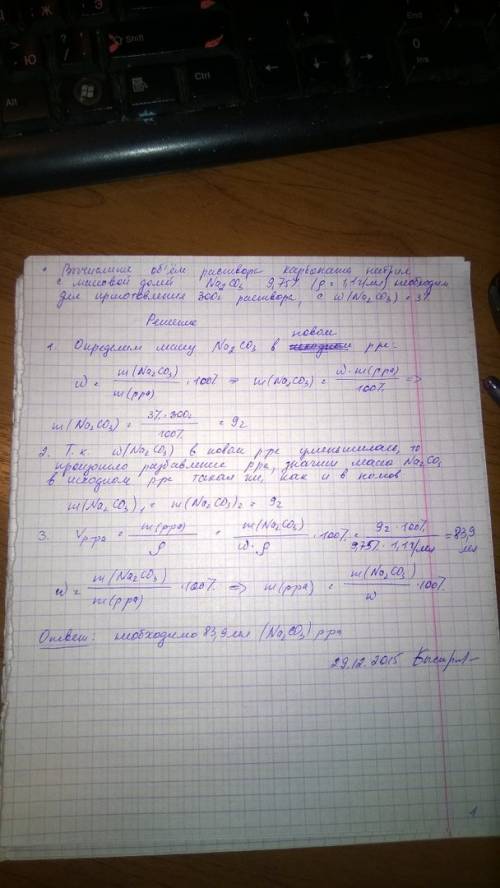 Вычислите объём раствора карбоната натрия
с массовой долей Na₂CO₃ 9,75% (ρ = 1,1 г/мл) необходим
для приготовления 300г раствора, с w(Na₂CO₃) = 3%
Решение
1. Определяем массу Na₂CO₃ в новом р-ре:
ω = m(Na₂CO₃) / m(р-ра) · 100% => m(Na₂CO₃) = ω · m(р-ра) / 100% =>
m(Na₂CO₃) = 3% · 300г / 100% = 9г
2. Т.к. w(Na₂CO₃) в новом р-ре уменьшилась, то
произошло разбавление р-ра, значит масса Na₂CO₃
в исходном р-ре такая же, как и в новом
m(Na₂CO₃)₁ = m(Na₂CO₃)₂ = 9г
3. Vр-ра = m(р-ра) / ρ = m(Na₂CO₃) / ω · ρ · 100% = 9г · 100% / 9,75% · 1,1 г/мл = 83,9 мл
ω = m(Na₂CO₃) / m(р-ра) · 100% => m(р-ра) = m(Na₂CO₃) / ω · 100%
Ответ: необходимо 83,9 мл (Na₂CO₃) р-ра
29.12.2015
1
Shift
Alt
Ctrl
End
Ins
0
Ж
Э
Ю